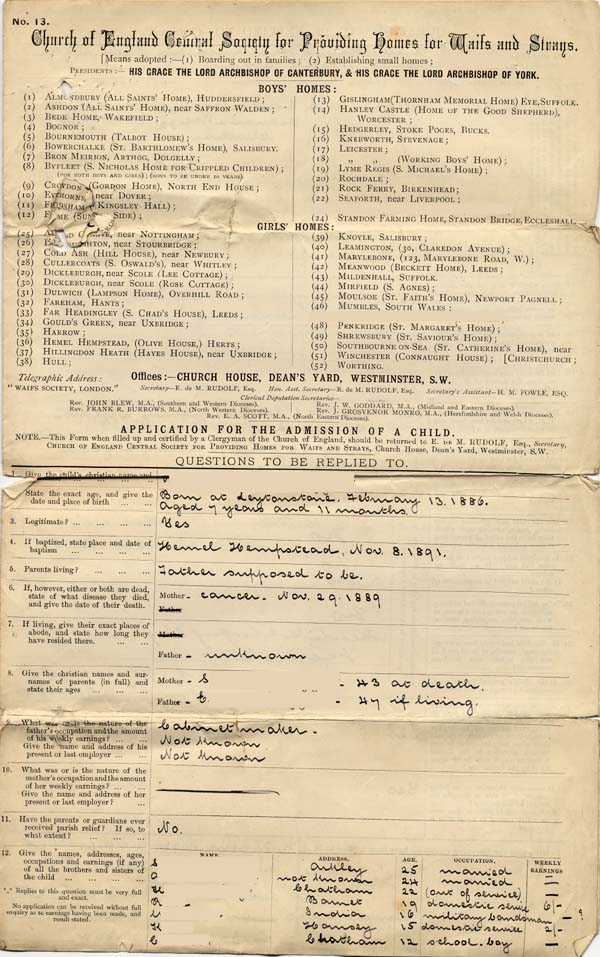 No. 13.
Church of England Central Society for Providing Homes for Waifs and Strays.
[Means adopted :—(1) Boarding out in families ; (2) Establishing small homes ;
Presidents :— HIS GRACE THE LORD ARCHBISHOP OF CANTERBURY, & HIS GRACE THE LORD ARCHBISHOP OF YORK.
BOYS' HOMES :
(1) Almondbury (All Saints' Home), Huddersfield ;
(2) Ashdon (All Saints' Home), near Saffron Walden ;
(3) Bede Home, Wakefield ;
(4) Bognor ;
(5) Bournemouth (Talbot House) ;
(6) Bowerchalke (St. Barthlomew's Home), Salisbury.
(7) Bron Meirion, Arthog, Dolgelly ;
(8) Byfleet (S. Nicholas Home for Crippled Children) ;
(for both boys and girls) ; (boys to be under 10 years)
(9) Croydon (Gordon Home), North End House ;
(10) near Dover ;
(11) Kingsley Hall) ;
(12) Side) ;
(13) Gislingham (Thornham Memorial Home) Eye, Suffolk.
(14) Hanley Castle (Home of the Good Shepherd),
Worcester ;
(15) Hedgerley, Stoke Poges, Bucks.
(16) Knebworth, Stevenage ;
(17) Leicester ;
(18) " " (Working Boys' Home) ;
(19) Lyme Regis (S. Michael's Home) ;
(20) Rochdale ;
(21) Rock Ferry, Birkenhead ;
(22) Seaforth, near Liverpool ;
(24) Standon Farming Home, Standon Bridge, Eccleshall.
GIRLS' HOMES :
(25) near Nottingham ;
(26) near Stourbridge ;
(27) Cold Ash (Hill House), near Newbury ;
(28) Cullercoats (S. Oswald's), near Whitley ;
(29) Dickleburgh, near Scole (Lee Cottage) ;
(30) Dickleburgh, near Scole (Rose Cottage) ;
(31) Dulwich (Lampson Home), Overhill Road ;
(32) Fareham, Hants ;
(33) Far Headingley (S. Chad's House), Leeds ;
(34) Gould's Green, near Uxbridge ;
(35) Harrow ;
(36) Hemel Hempstead, (Olive House,) Herts ;
(37) Hillingdon Heath (Hayes House), near Uxbridge ;
(38) Hull ;
(39) Knoyle, Salisbury ;
(40) Leamington, (30, Claredon Avenue) ;
(41) Marylebone, (123, Marylebone Road, W.) ;
(42) Meanwood (Beckett Home), Leeds ;
(43) Mildenhall, Suffolk.
(44) Mirfield (S. Agnes) ;
(45) Moulsoe (St. Faith's Home), Newport Pagnell ;
(46) Mumbles, South Wales :
(48) Penkridge (St. Margaret's Home) ;
(49) Shrewsbury (St. Saviour's Home) ;
(50) Southbourne-on-Sea (St. Catherine's Home), near
(51) Winchester (Connaught House) ; [Christchurch ;
(52) Worthing.
Telegraphic Address :
"WAIFS SOCIETY, LONDON."
Offices :—CHURCH HOUSE, DEAN'S YARD, WESTMINSTER, S.W.
Secretary—E. de M. RUDOLF, Esq. Hon. Asst. Secretary—R. de M. RUDOLF, Esq. Secretary's Assistant—H. M. FOWLE, ESQ.
Clerical Deputation Secretaries—
Rev. JOHN BLEW, M.A., (Southern and Western Dioceses). Rev. J. W. GODDARD, M.A., (Midland and Eastern Dioceses).
Rev. FRANK R. BURROWS, M.A., (North Western Dioceses). Rev. J. GROSVENOR MONRO, M.A., (Herefordshire and Welsh Dioceses).
Rev. E. A. SCOTT, M.A., (North Eastern Dioceses).
APPLICATION FOR THE ADMISSION OF A CHILD.
NOTE.—This Form when filled up and certified by a Clergyman of the Church of England, should be returned to E. de M. RUDOLF, Esq., Secretary,
Church of England Central Society for Providing Homes for Waifs and Strays, Church House, Dean's Yard, Westminster, S.W.
QUESTIONS TO BE REPLIED TO.
1. Give the child's christian name and
State the exact age, and give the
date and place of birth
Born at Leytonstone, February 13. 1886.
Aged 7 years and 11 months.
3. Legitimate ?
Yes
4. If baptized, state place and date of
baptism
Hemel Hempstead, Nov. 8. 1891.
5. Parents living ?
Father supposed to be.
6. If, however, either or both are dead,
state of what disease they died,
and give the date of their death.
Mother - cancer - Nov. 29. 1889
Father
7. If living, give their exact places of
abode, and state how long they
have resided there.
Mother
Father - unknown
8. Give the christian names and sur-
names of parents (in full) and
state their ages
Mother - S - 43 at death.
Father - C - 47 if living.
9. What was or is the nature of the
father's occupation and the amount
of his weekly earnings ?
Give the name and address of his
present or last employer
Cabinet maker.
Not known
Not known
10. What was or is the nature of the
mother's occupation and the amount
of her weekly earnings ?
Give the name and address of her
present or last employer ?
11. Have the parents or guardians ever
received parish relief ? If so, to
what extent ?
No.
12. Give the names, addresses, ages,
occupations and earnings (if any)
of all the brothers and sisters
of the child
*,* Replies to this question must be very full
and exact.
No application can be received without full
enquiry as to earnings having been made, and
result stated.
NAME. ADDRESS. AGE. OCCUPATION. WEEKLY EARNINGS
S 25 married —
not known 24 married —
Chatham 22 (out of service) —
Barnet 19 domestic service 6/-
India 16 military bandsman — ?
15 domestic service 2/-
C Chatham 12 school-boy —